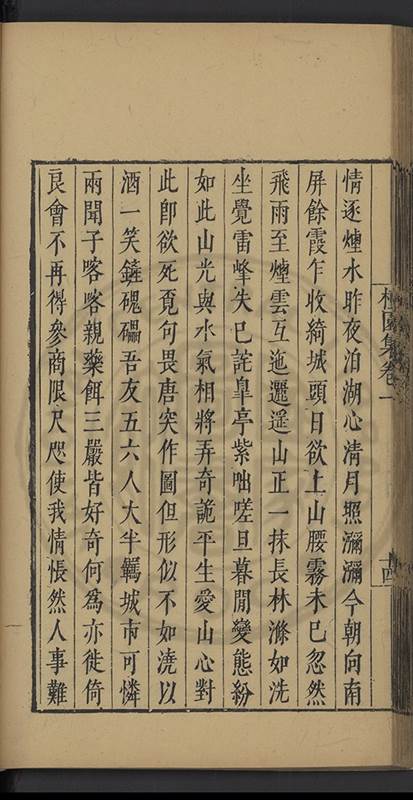 情逐煙水昨夜泊湖心清月照瀰瀰今朝向南
屏餘霞乍收綺城頭日欲上山腰霧未已忽然
飛雨至煙雲互迤邐遥山正一抹長林滌如洗
坐覺雷峰失已詫臯亭紫咄嗟旦暮閒變態紛
如此山光與水氣相將弄奇詭平生愛山心對
此卽欲死覔句畏唐突作圖但形似不如澆以
酒一笑鏟磈礧吾友五六人大半羈城市可憐
兩聞子喀喀親藥餌三嚴皆好奇何爲亦徙倚
良會不再得參商限尺咫使我情悵然人事難
園集卷一
十四